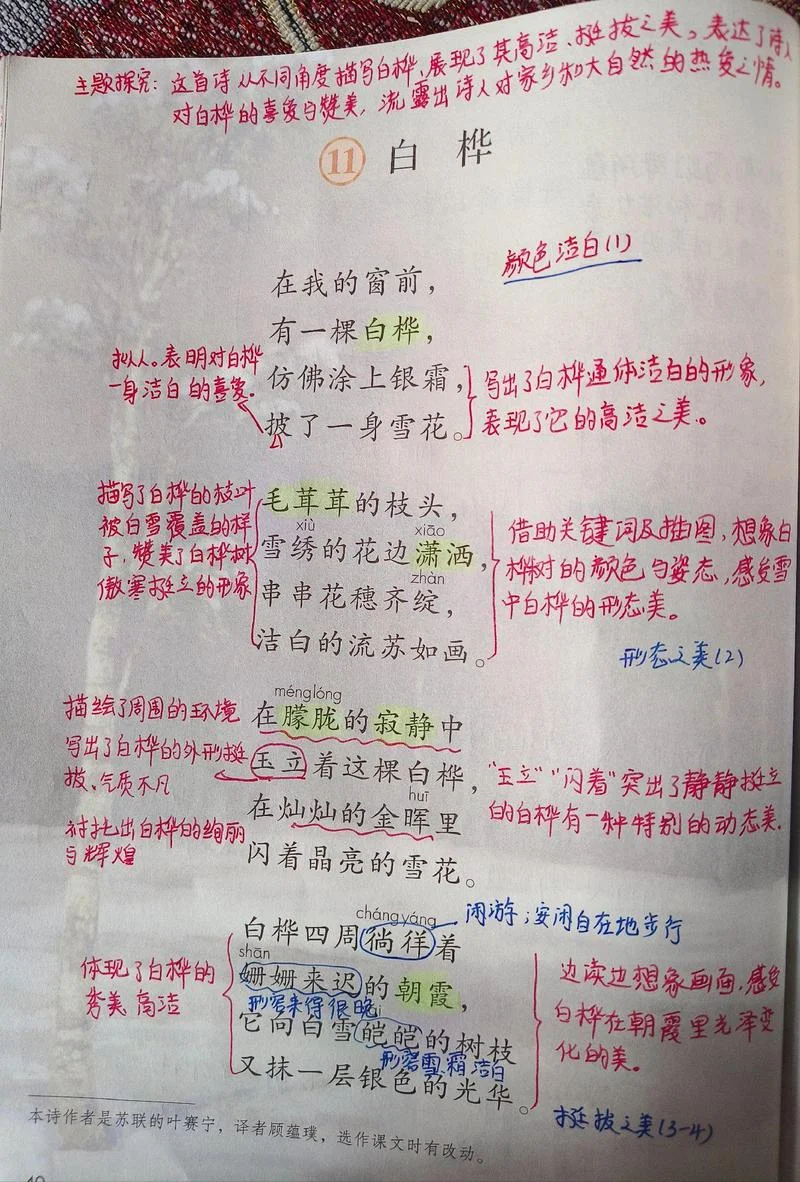 主题探究：这首诗从不同角度描写白桦，展现了其高洁、挺拔之美。表达了诗人
对白桦的喜爱与赞美，流露出诗人对家乡和大自然的热爱之情。
11 白桦
颜色洁白(1)
在我的窗前，
有一棵白桦，
仿佛涂上银霜，
披了一身雪花。
拟人。表明对白桦
一身洁白的喜爱。
写出了白桦通体洁白的形象，
表现了它的高洁之美。
毛茸茸的枝头，
xiù xiāo
雪绣的花边潇洒，
zhàn
串串花穗齐绽，
洁白的流苏如画。
描写了白桦的枝叶
被白雪覆盖的样
子，赞美了白桦树
傲寒挺立的形象
借助关键词及插图，想象白
桦树的颜色与姿态，感受雪
中白桦的形态美。
形态之美(2)
ménglóng
在朦胧的寂静中
玉立着这棵白桦，
huī
在灿灿的金晖里
闪着晶亮的雪花。
描绘了周围的环境
写出了白桦的外形挺
拔、气质不凡
衬托出白桦的绚丽
与辉煌
“玉立”“闪着”突出了静静挺立
的白桦有一种特别的动态美.
cháng yáng
白桦四周徜徉着
闲游；安闲自在地步行
shān
姗姗来迟的朝霞，
形容来得很晚
它向白雪皑皑的树枝
形容雪、霜洁白
又抹一层银色的光华。
体现了白桦的
秀美高洁
边读边想象画面，感受
白桦在朝霞里光泽变
化的美。
挺拔之美(3-4)
本诗作者是苏联的叶赛宁，译者顾蕴璞，选作课文时有改动。